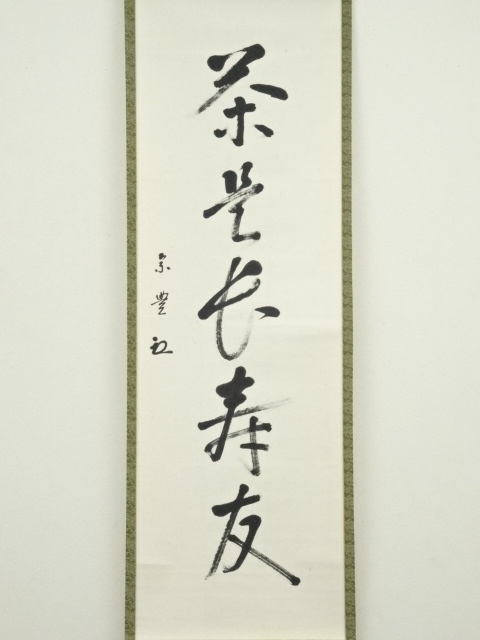 茶是长寿友
宗豊